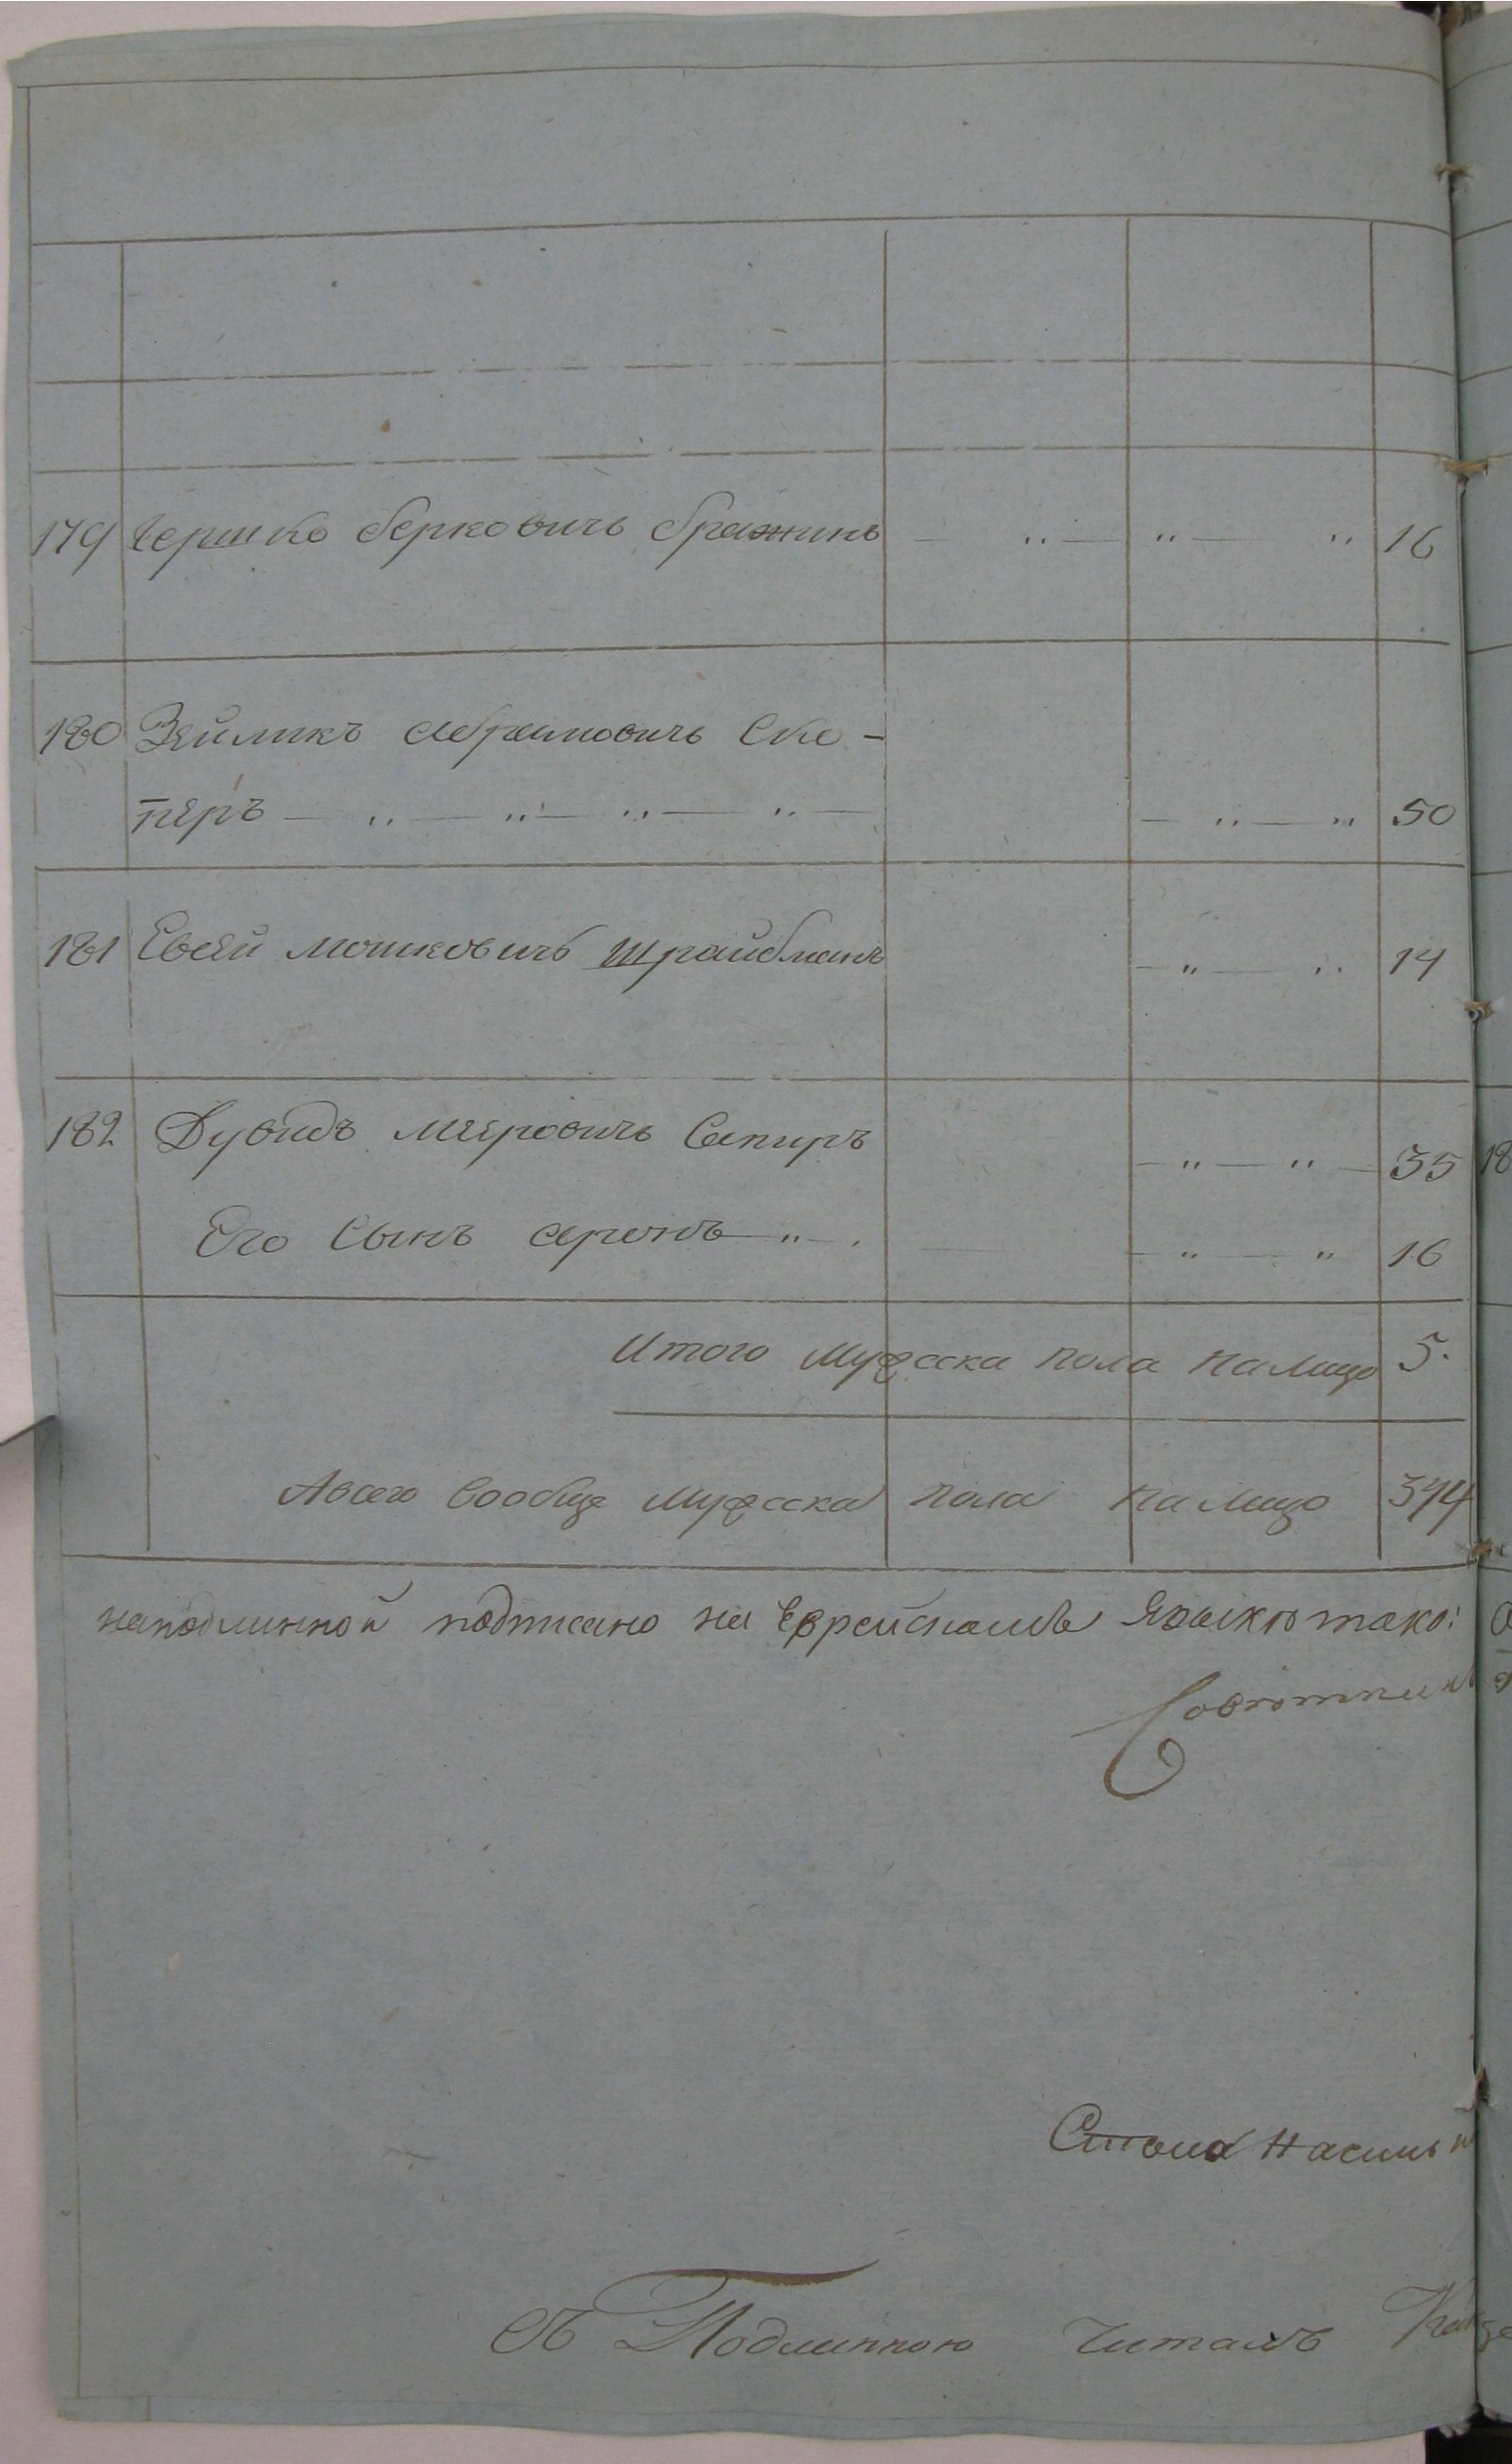 179 Гершко Беркович Бражник — „ — „ — „ 16
180 Зейликъ Абрамовичь Ска-
перъ — „ — „ — „ — „ — — „ — „ 50
181 Евсей Мошковичъ Шрайбманъ — „ — „ 14
182 Дувидъ Мееровичь Сапиръ — „ — „ — 35
Его Сынъ Аронъ — „ — . — „ — „ 16
Итого Мужеска пола налицо 5.
А всего вообще Мужеска пола налицо 374
на подлинной подписано на Еврейскомъ Языкѣ тако:
Съ Подлинною Читалъ